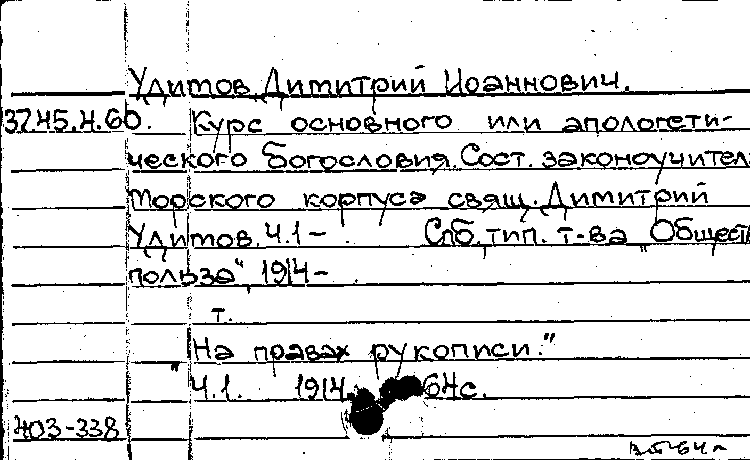 Удитов, Димитрий Иоаннович.
37.45.4.60. Курс основного или апологети-
ческого богословия. Сост. законоучител
Морского корпуса свящ. Димитрий
Удитов. Ч.1- Спб, тип. т-ва „Обществ
польза", 1914-
т.
„На правах рукописи."
Ч.1. 1914. 64с.
403-338